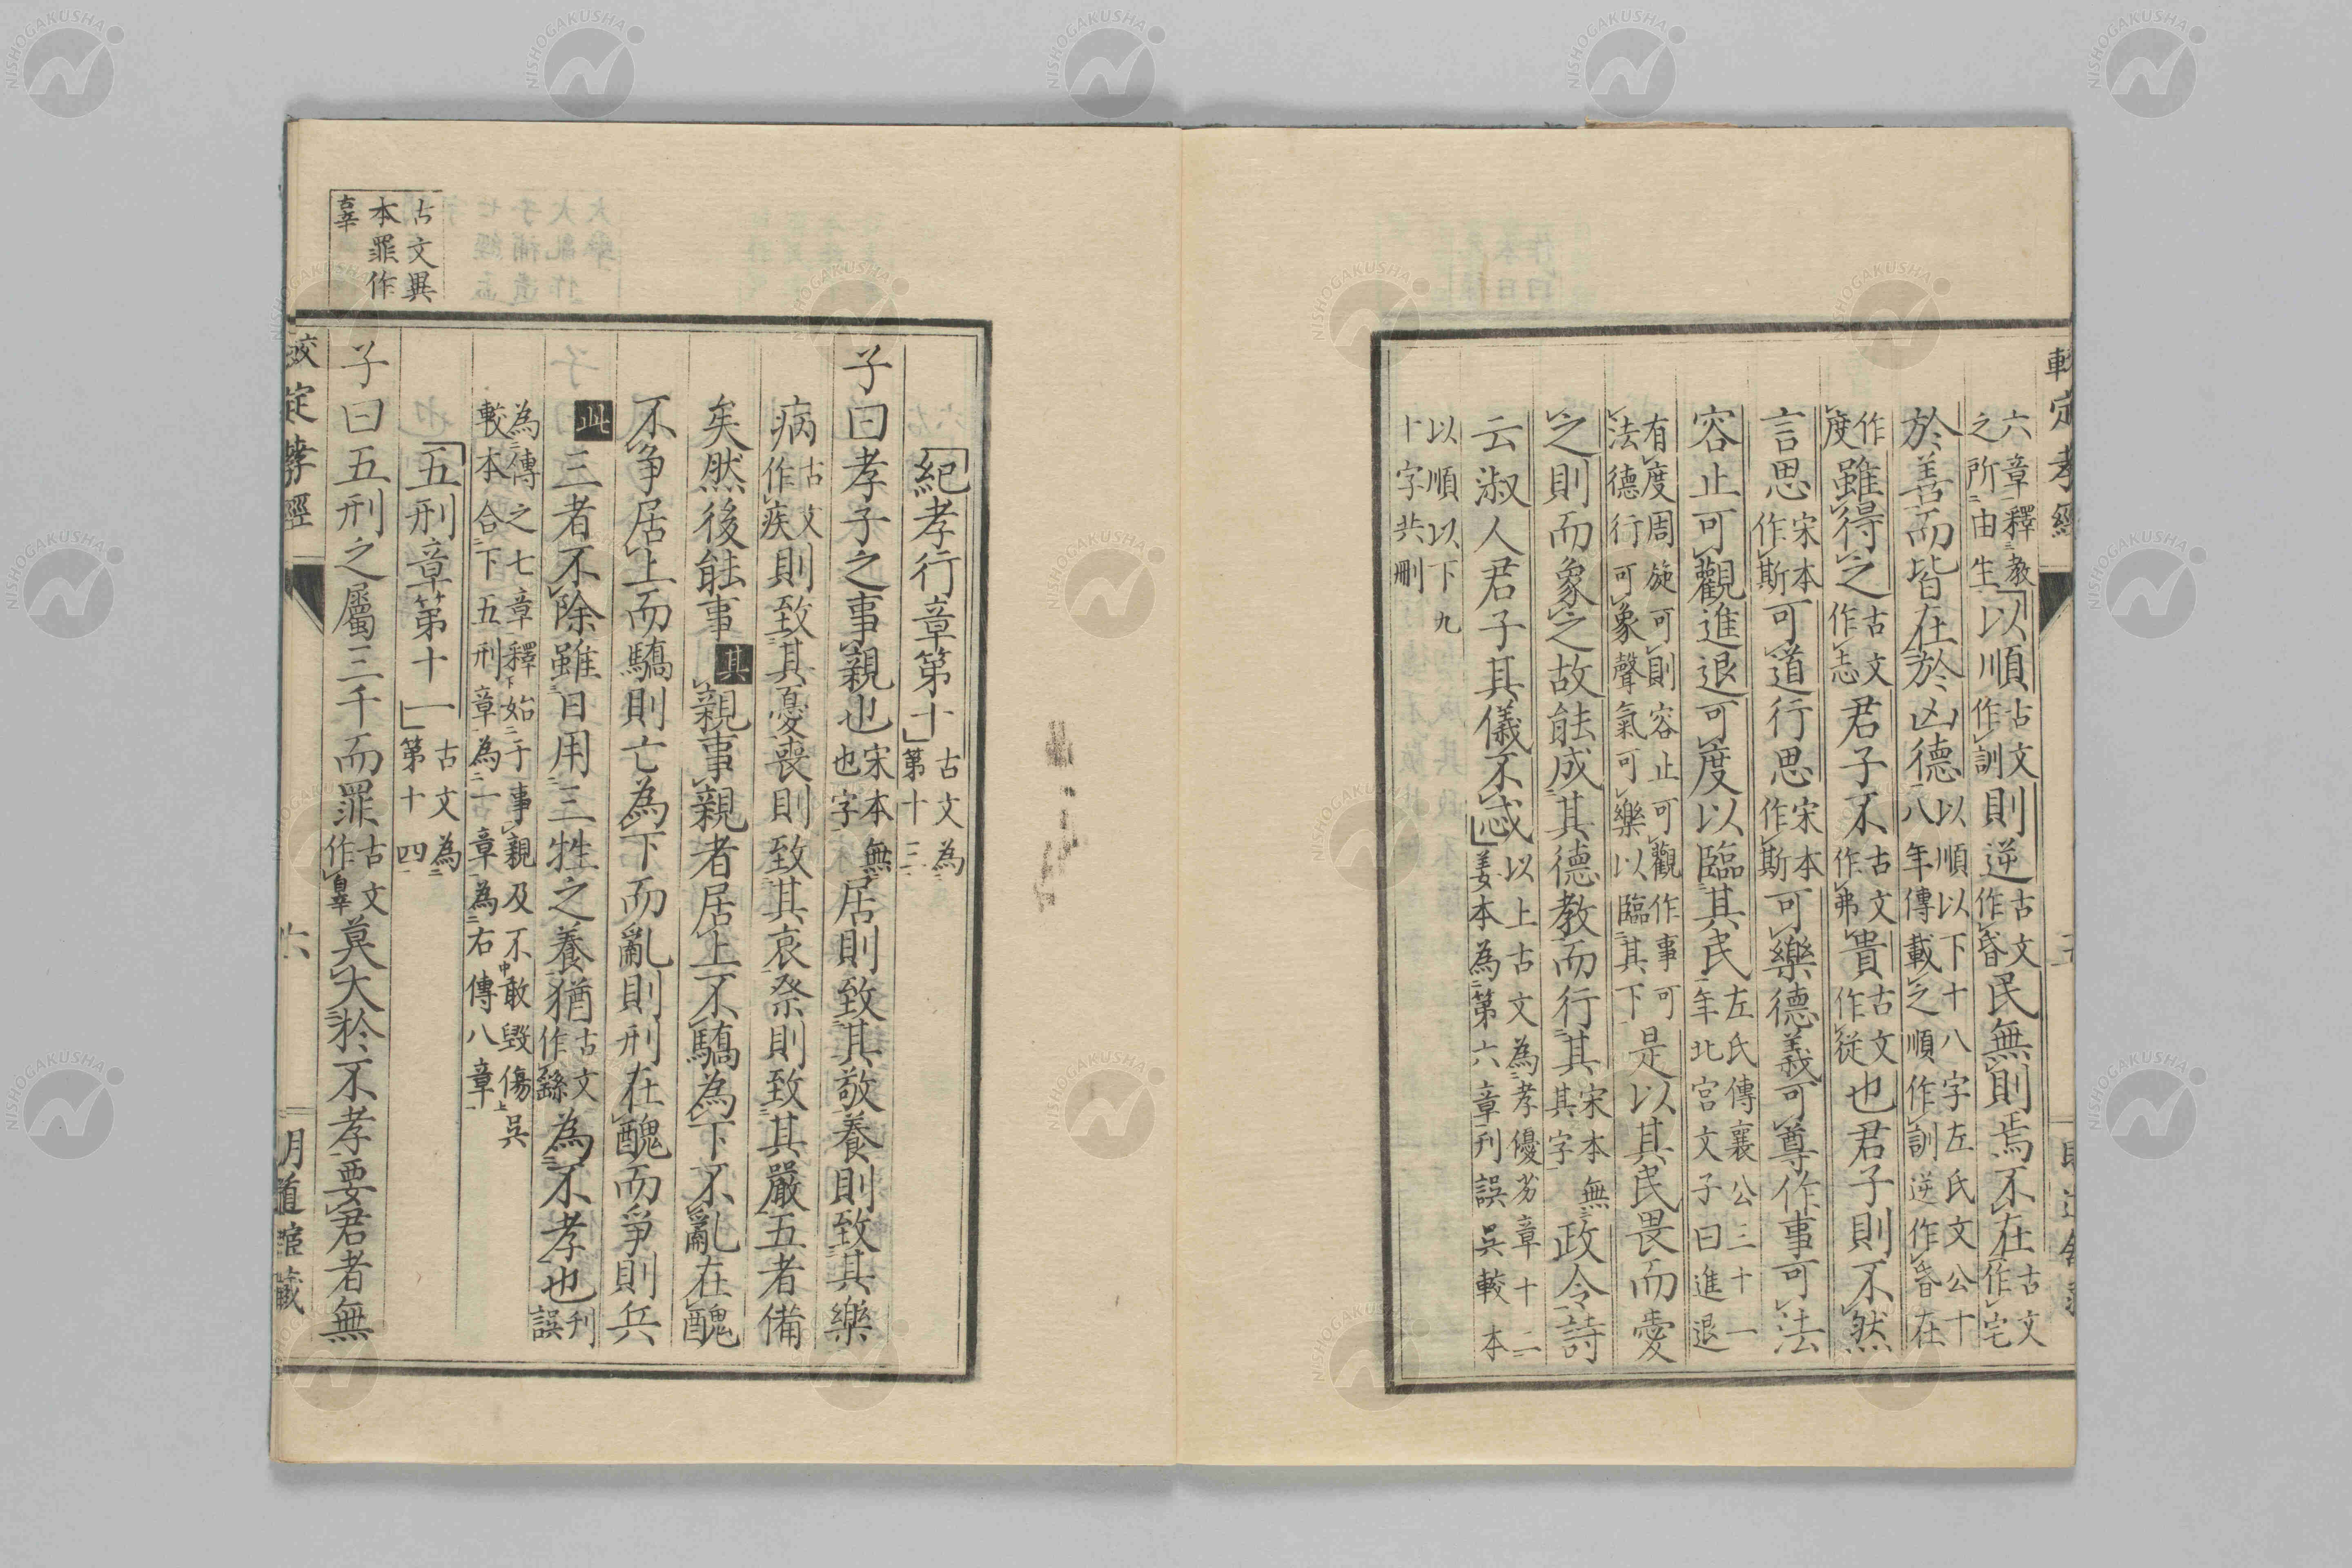 較定孝經
六章釋教
之所由生
以順古文作訓則逆古文作昏民無則焉不在古文作宅
於善而皆在於凶德以順以下十八字左氏文公十八年傳載之順作訓逆作昏在
作度雖得之古文作志君子不古文作弗貴古文作從也君子則不然
言思宋本作斯可道行思宋本作斯可樂德義可尊作事可法
容止可觀進退可度以臨其民左氏傳襄公三十一年北宮文子曰進退
有度周旋可則容止可觀作事可法德行可象聲氣可樂以臨其下是以其民畏而愛
之則而象之故能成其德教而行其宋本無其字政令詩
云淑人君子其儀不忒以上古文為孝優劣章十二姜本為第六章刊誤吳較本
以順以下九十字共刪
紀孝行章第十古文為第十三
子曰孝子之事親也宋本無也字居則致其敬養則致其樂
病古文作疾則致其憂喪則致其哀祭則致其嚴五者備
矣然後能事其親事親者居上不驕為下不亂在醜
不爭居上而驕則亡為下而亂則刑在醜而爭則兵
此三者不除雖日用三牲之養猶古文作繇為不孝也刊誤
為傳之七章釋始于事親及不敢毀傷吳較本合下五刑章為一章為右傳八章
五刑章第十一古文為第十四
子曰五刑之屬三千而罪古文作辠莫大於不孝要君者無
古文異
本罪作
辜
較定孝經
六
明道館藏